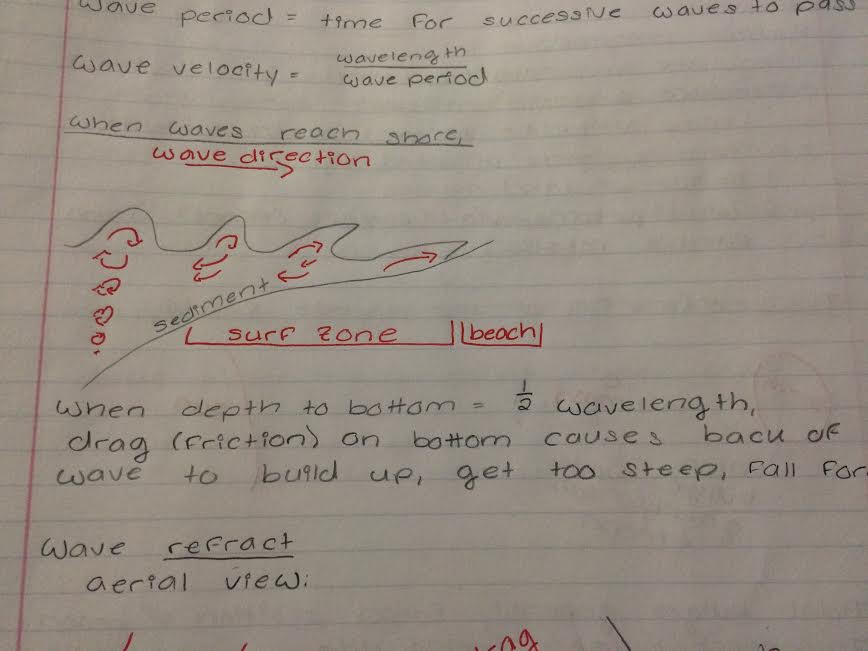 wave period = time for successive waves to pass
wave velocity = wavelength
wave period
when waves reach shore,
wave direction
sediment
surf zone
beach
when depth to bottom = 1/2 wavelength,
drag (friction) on bottom causes back of
wave to build up, get too steep, fall for
wave refract
aerial view: